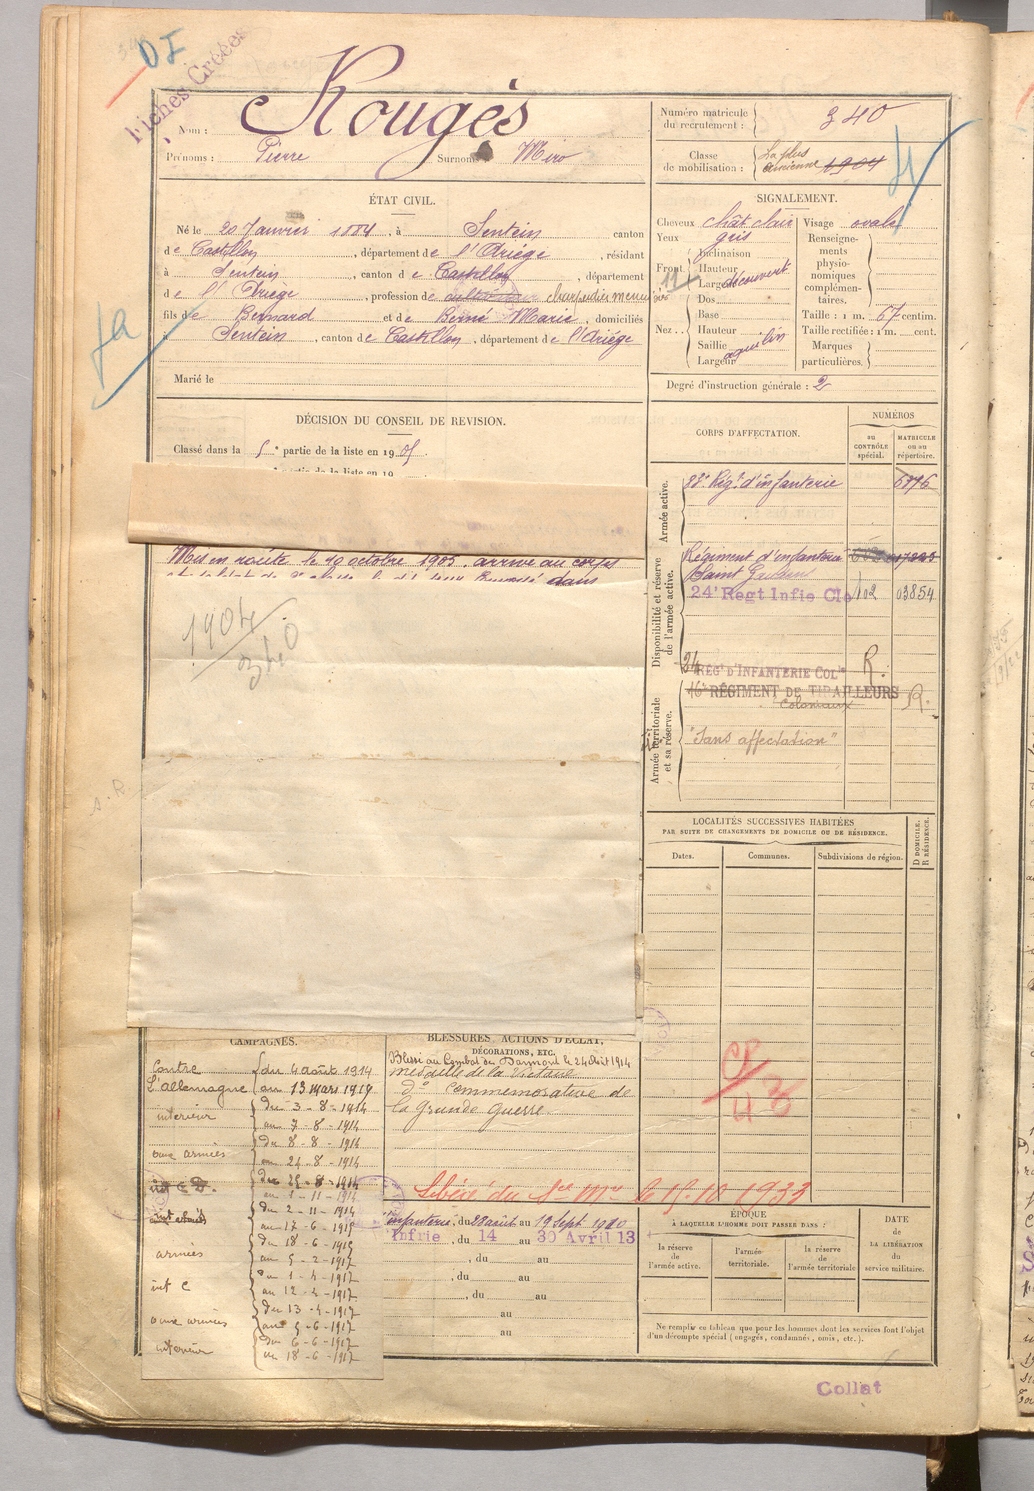 DI
Fiches Créées
Nom : Rougès
Prénoms : Pierre Surnoms Miro
Numéro matricule du recrutement : 340
Classe de mobilisation : La plus ancienne 1904
ÉTAT CIVIL.
Né le 20 Janvier 1884, à Sentein canton
de Castillon, département de l'Ariège, résidant
à Sentein, canton de Castillon, département
de l'Ariège, profession de cultivateur charpentier menuisier
fils de Bernard et de Berné Marie, domiciliés
à Sentein, canton de Castillon, département de l'Ariège
Marié le
SIGNALEMENT.
Cheveux chât clair
Yeux gris
Front Inclinaison
Hauteur
Larg découvert
Nez.. Dos
Base
Hauteur
Saillie
Largeur
aquilin
Visage ovale
Renseignements physionomiques complémentaires.
Taille : 1 m. 67 centim.
Taille rectifiée : 1 m. cent.
Marques particulières.
Degré d'instruction générale : 2
DÉCISION DU CONSEIL DE REVISION.
Classé dans la 5e partie de la liste en 1905.
e partie de la liste en 19
Mis en route le 10 octobre 1905. arrivé au corps
1904
340
CORPS D'AFFECTATION.
NUMÉROS
au CONTRÔLE spécial.
MATRICULE ou au répertoire.
Armée active.
Régt d'infanterie 6776
Disponibilité et réserve de l'armée active.
Régiment d'infanterie
Saint Gaudens
24e Regt Infie Cle 102 03854
24 REGt D'INFANTERIE COLle R.
16e RÉGIMENT DE TIRAILLEURS R.
Coloniaux
Armée territoriale et sa réserve.
"Sans affectation"
LOCALITÉS SUCCESSIVES HABITÉES
PAR SUITE DE CHANGEMENTS DE DOMICILE OU DE RÉSIDENCE.
Dates. Communes. Subdivisions de région. D DOMICILE. R RÉSIDENCE.
CAMPAGNES.
Contre du 4 août 1914
L'allemagne au 13 mars 1919
intérieur du 3-8-1914
au 7-8-1914
aux armées du 8-8-1914
au 24-8-1914
du 25-8-1914
au 1-11-1914
du 2-11-1914
au 17-6-1915
du 18-6-1915
armées au 5-2-1917
int C du 1-4-1917
au 12-4-1917
du 13-4-1917
aux armées au 5-6-1917
du 6-6-1917
intérieur au 18-6-1917
BLESSURES, ACTIONS D'ÉCLAT, DÉCORATIONS, ETC.
Blessé au Combat de Jaumont le 24 août 1914
médaille de la Victoire
do commémorative de
la grande guerre
Libéré du Sce Mre le 15.10.1933
infanterie, du 28 août au 19 Sept 1910
Infrie, du 14 au 30 Avril 13
, du au
, du au
, du au
au
au
ÉPOQUE
À LAQUELLE L'HOMME DOIT PASSER DANS :
la réserve de l'armée active.
l'armée territoriale.
la réserve de l'armée territoriale
DATE de LA LIBÉRATION du service militaire.
Ne remplir ce tableau que pour les hommes dont les services font l'objet
d'un décompte spécial (engagés, condamnés, omis, etc.).
Collat